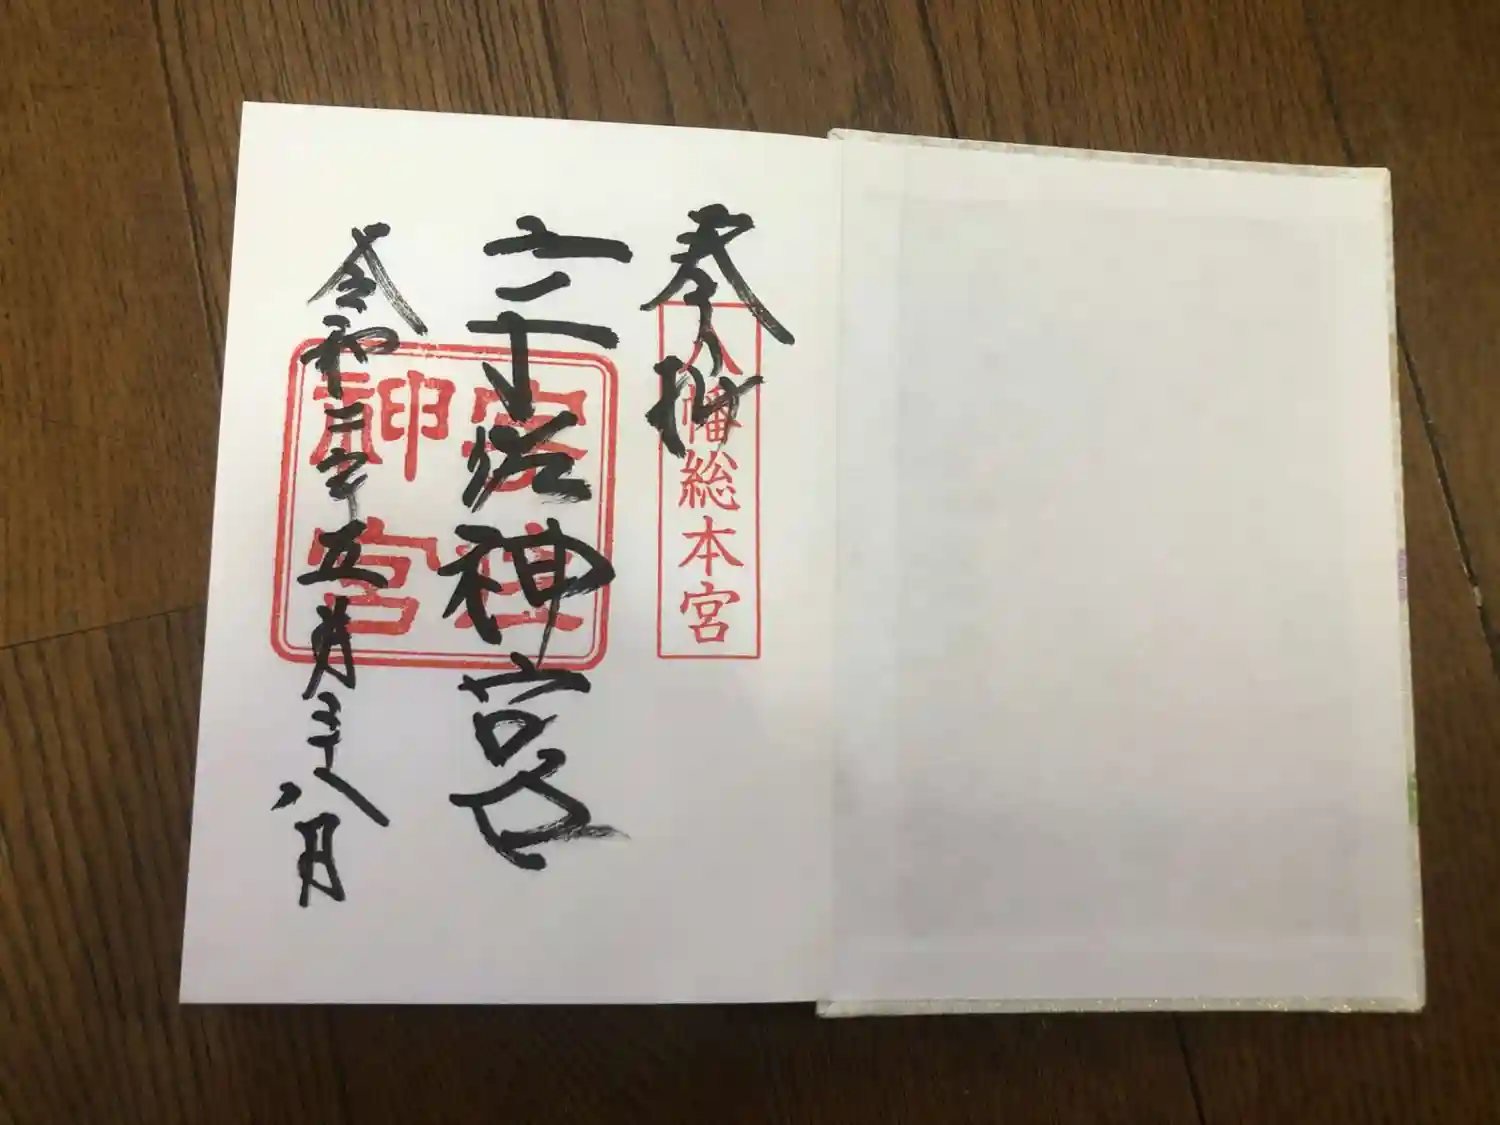 奉拝
八幡総本宮
宇佐神宮
宇佐
神宮
令和三年五月二十八日